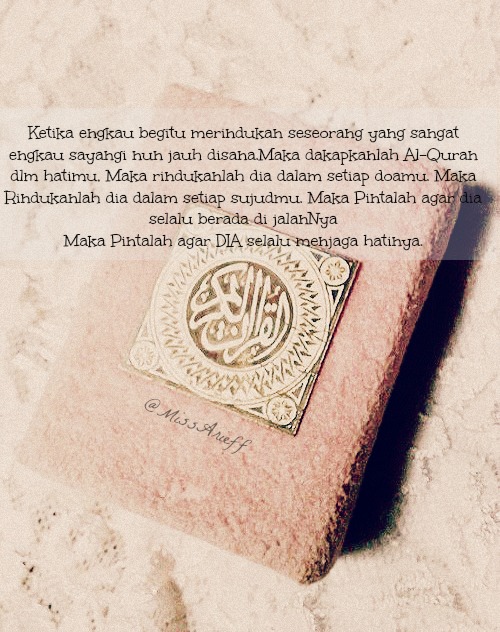 Ketika engkau begitu merindukan seseorang yang sangat
engkau sayangi nun jauh disana.Maka dakapkanlah Al-Quran
dlm hatimu, Maka rindukanlah dia dalam setiap doamu. Maka
Rindukanlah dia dalam setiap sujudmu. Maka Pintalah agar dia
selalu berada di jalanNya
Maka Pintalah agar DIA selalu menjaga hatinya.
القرآن الكريم
@MissArieff